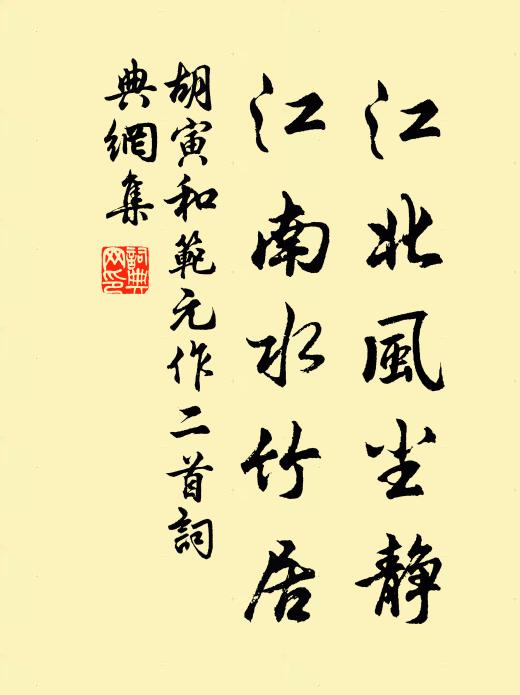 江北風尘静
江南水竹居
胡寅和範元作二首詞
典網集
詞典
网印